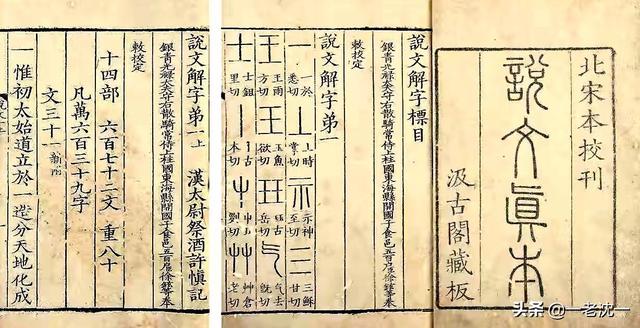 北宋本校刊
說文眞本
汲古閣藏板
說文解字標目
銀青光祿大夫守右散騎常侍上柱國東海縣開國子食邑五百戶徐鉉等奉
敕校定
說文解字弟一
一 於悉切 上 上時掌切 示 示神至切 三 三穌甘切
王 王雨方切 玉 玉魚欲切 玨 古岳切 气 旣切
士 士鉏里切 丨 本切 屮 切 艸 艸倉老切
說文解字弟一上 漢太尉祭酒許愼記
銀青光祿大夫守右散騎常侍上柱國東海縣開國子食邑五百戶徐鉉等奉
敕校定
十四部 六百七十二文 重八十
凡萬六百三十九字
文三十一新附
一惟初太始道立於一造分天地化成
头条 @一老沈一